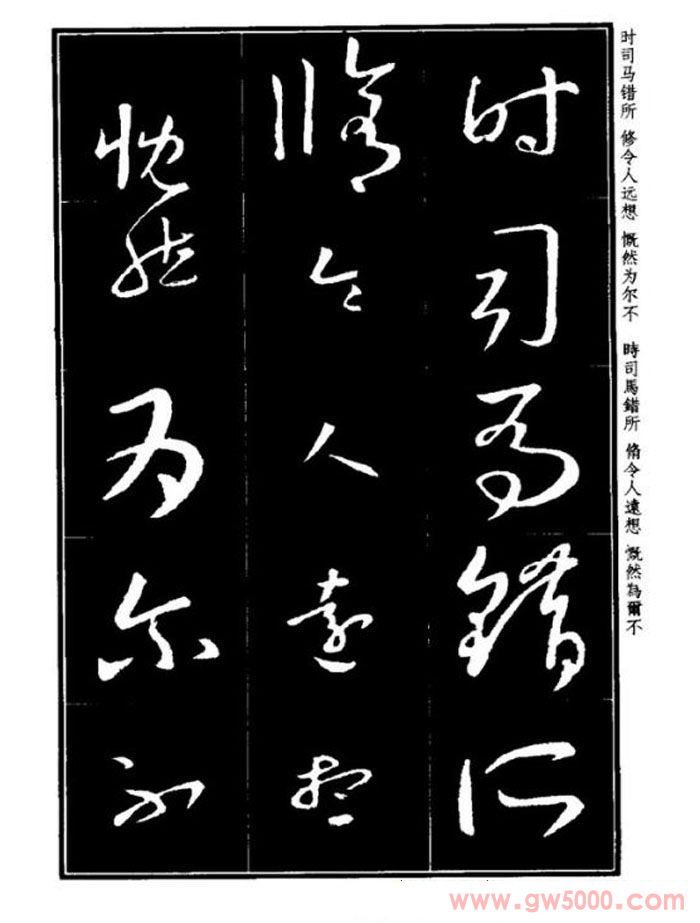 时司马错所
脩令人远想
慨然为尔不
时司马错所 修令人远想 慨然为尔不
時司馬錯所 脩令人遠想 慨然為爾不
www.gw5000.com